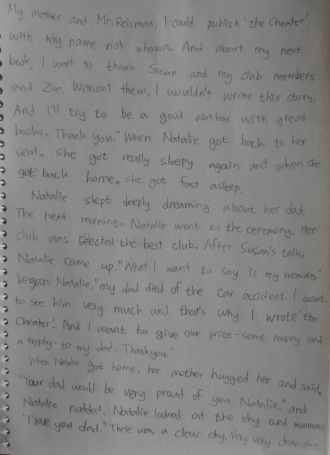 My mother and Mr. Reisman, I could publish 'the Cheater'
with my name not shown. And about my next
book, I want to thank Susan and my club members
and Zoe. Without them, I wouldn't wrote this story.
And I'll try to be a good author with great
books. Thank you." When Natalie got back to her
seat, she got really sleepy again and when she
got back home, she got fast asleep.
Natalie slept deeply dreaming about her dad.
The next morning, Natalie went to the ceremony. Her
club was selected the best club. After Susan's talk,
Natalie came up. "What I want to say is my
began Natalie, "my dad died of the car accident. I want
to see him very much and that's why I wrote 'the
Cheater'. And I want to give our prize - some money and
a trophy - to my dad. Thank you."
When Natalie got home, her mother hugged her and said,
"Your dad would be very proud of you Natalie," and
Natalie nodded. Natalie looked at the sky and murmured
"I love you dad." There was a clear sky. Very very clear sky.